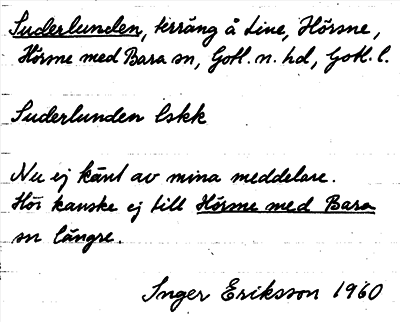 Suderlunden, terräng å Line, Hörsne,
Hörsne med Bara sn, Gotl. n. hd, Gotl. l.
Suderlunden Lskk
Nu ej känt av mina meddelare.
Hör kanske ej till Hörsne med Bara
sn längre.
Inger Eriksson 1960